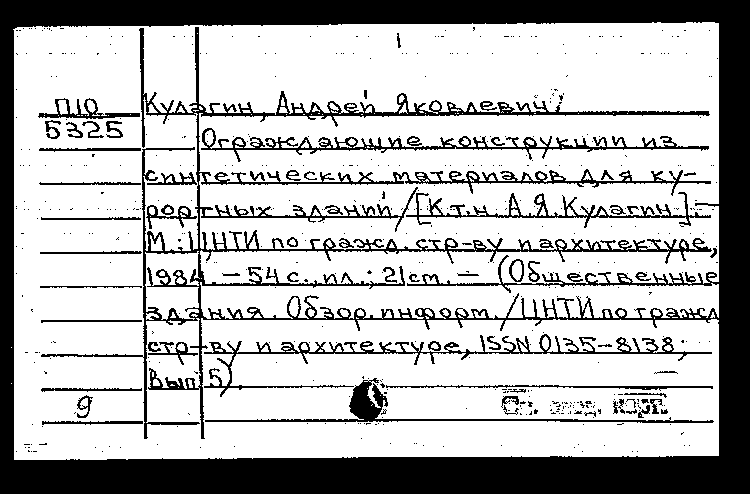 1
П10 Кулагин, Андрей Яковлевич.
5325 Ограждающие конструкции из
синтетических материалов для ку-
рортных зданий / [К.т.н. А.Я. Кулагин]. —
М.: ЦНТИ по гражд. стр-ву и архитектуре,
1984. — 54 с., ил.; 21 cm. — (Общественные
здания. Обзор. информ. / ЦНТИ по гражд
стр-ву и архитектуре, ISSN 0135-8138;
Вып 5).
9